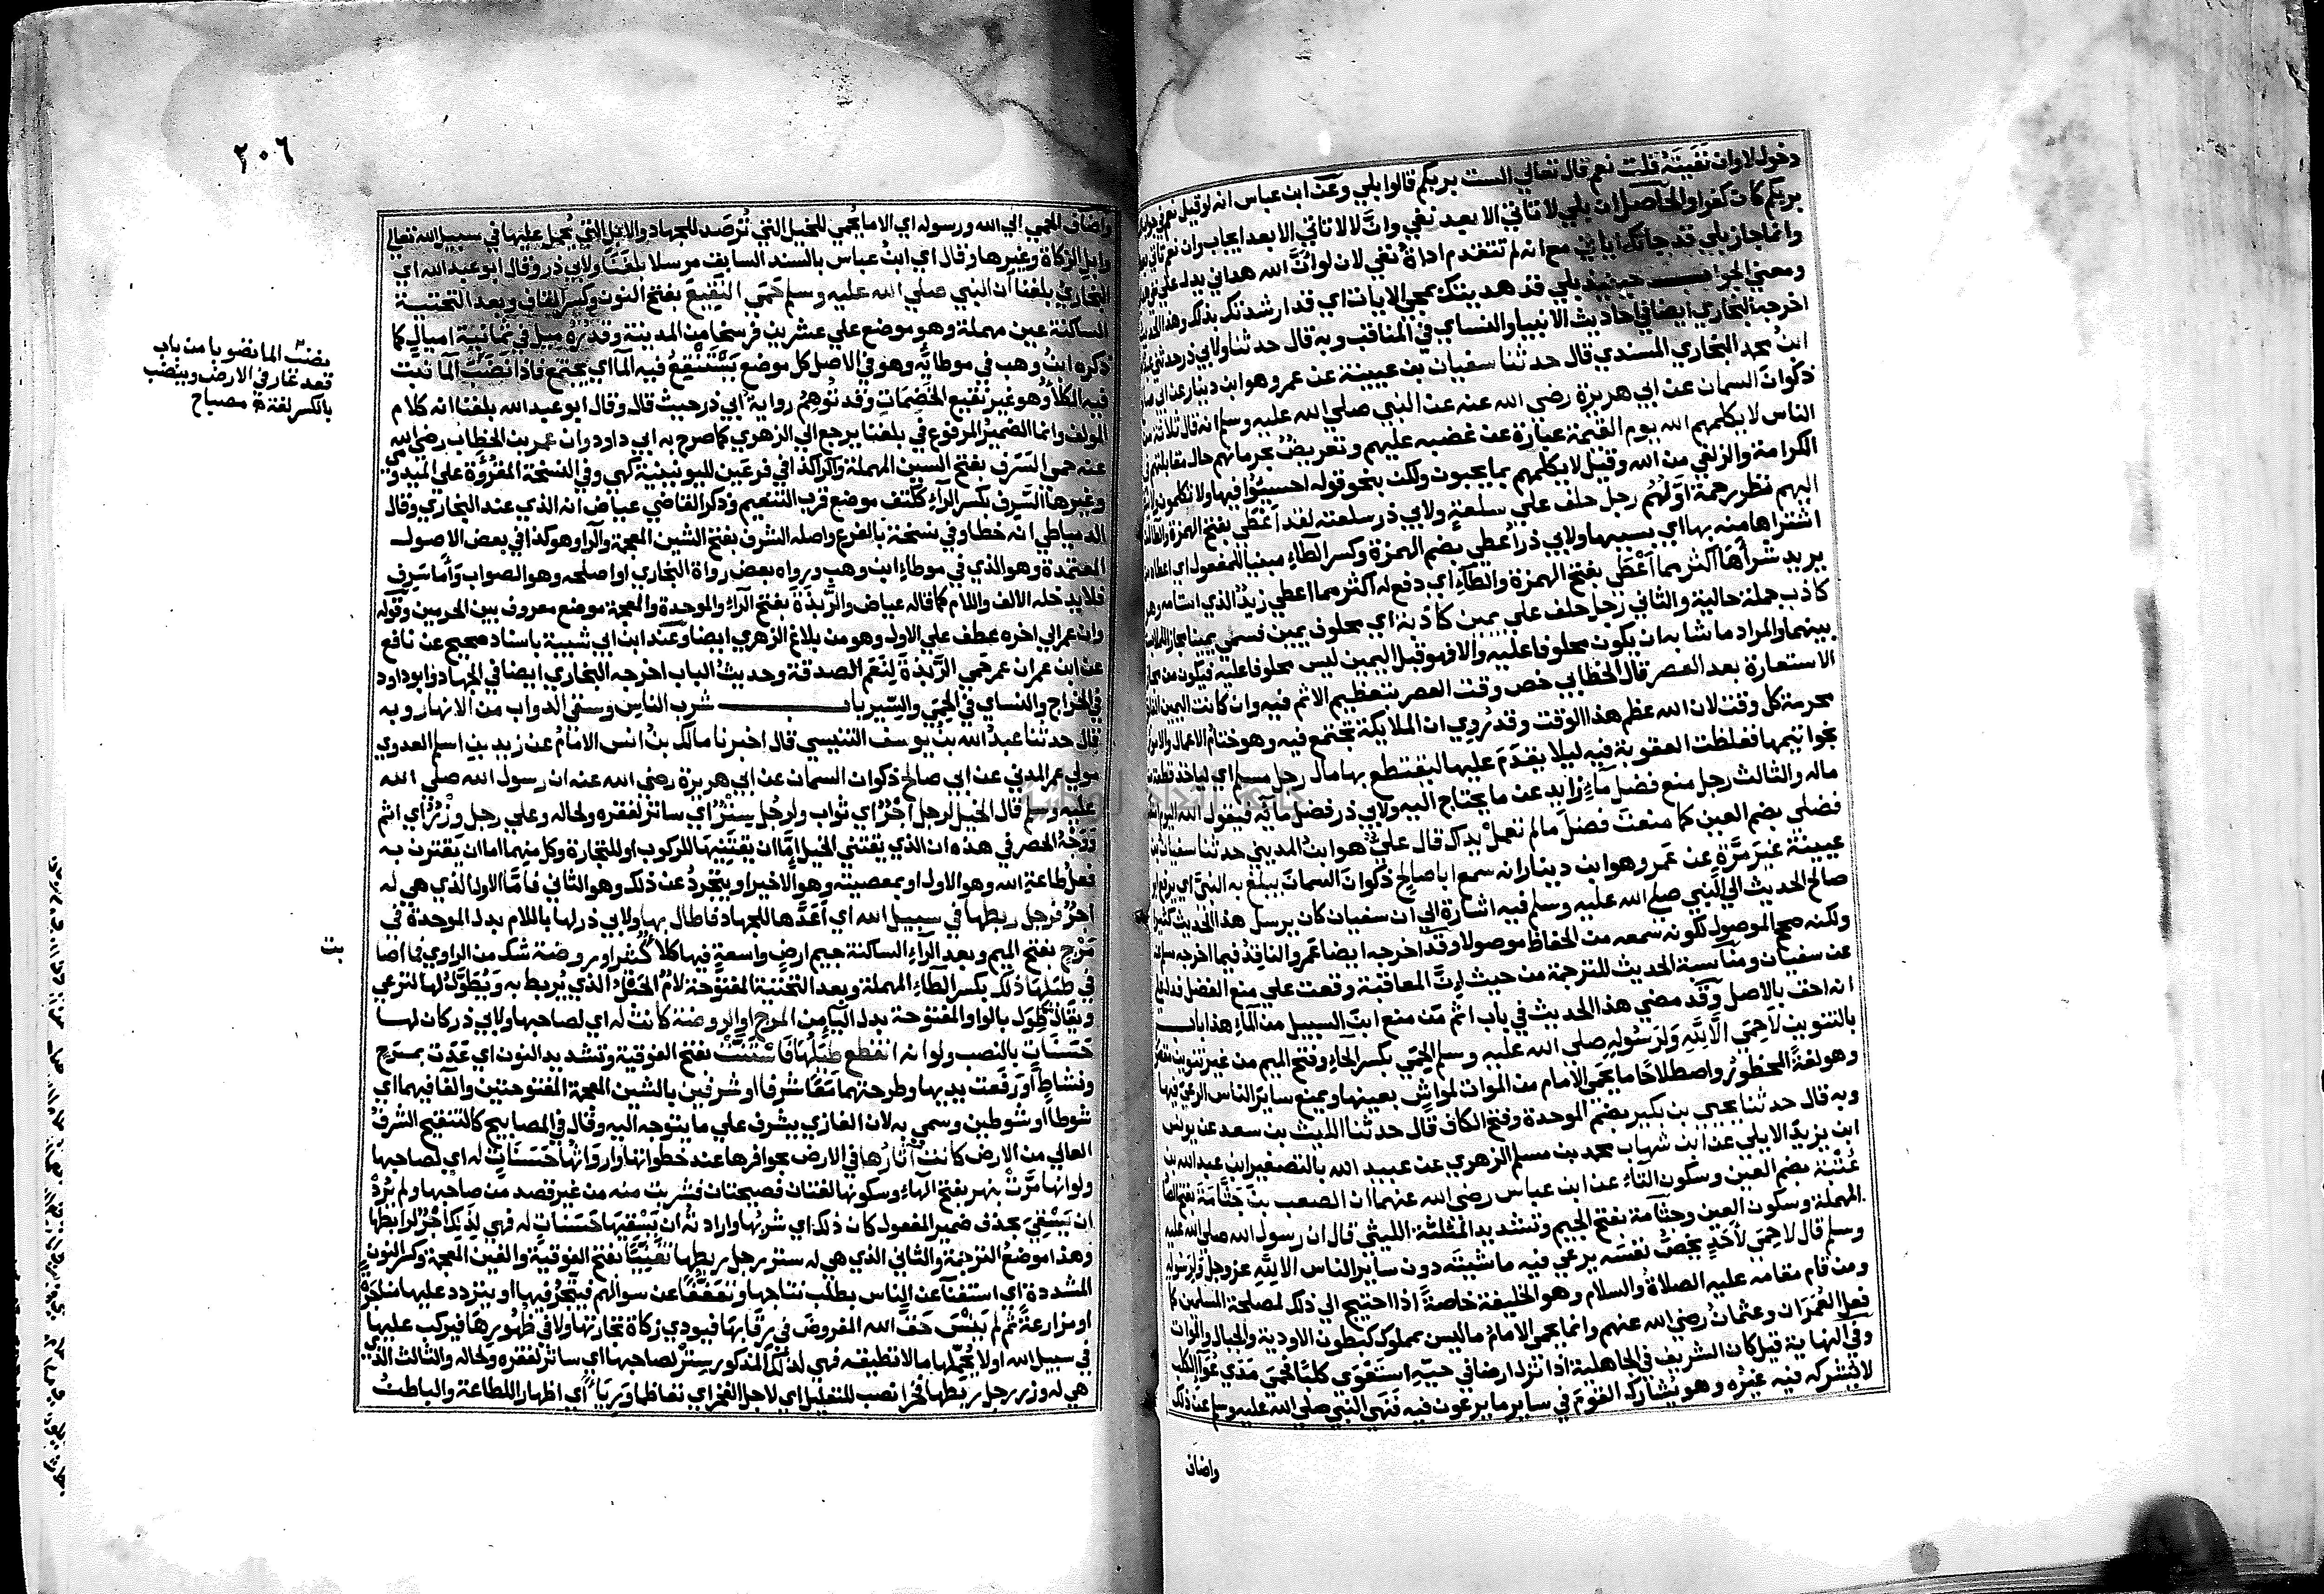 دخول لا وان نفيته قلت نعم قال تعالي الست بربكم قالوا بلي وعن ابن عباس انه لو قيل نعم في جواب الست
بربكم كان كفرا والحاصل ان بلي لا تاتي الا بعد نفي وانّ لا لا تاتي الا بعد ايجاب وان نعم تاتي بعد
وانما جاز بلي قد جاتك اياتي مع انه لم تتقدم اداة نفي لان لو انّ الله هداني يدل علي نفي
ومعني الجواب حينيذ بلي قد هديتك بمجي الايات اي قد ارشدتك بذلك وهذا الحديث
اخرجه البخاري ايضا في احاديث الانبيا والنساي في المناقب وبه قال حدثنا ولابي ذر حدثني
ابن محمد البخاري المسندي قال حدثنا سفيان بن عيينة عن عمرو هو ابن دينار عن ابي صالح
ذكوان السمان عن ابي هريرة رضي الله عنه عن النبي صلي الله عليه وسلم انه قال ثلاثة من
الناس لا يكلمهم الله يوم القيمة عبارة عن غضبه عليهم وتعريض بحرمانهم حال مقابلتهم في
الكرامة والزلفي من الله وقيل لا يكلمهم بما يحبون ولكن بنحو قوله اخسئوا فيها ولا تكلمون ولا ينظر
اليهم نظر رحمة اولهم رجل حلف علي سلعةٍ ولابي ذر سلعته لقد اَعْطَي بفتح الهمزة والطا
اشتراها منه بها اي بسببها ولابي ذر اُعطي بضم الهمزة وكسر الطاء مبنيا للمفعول اي اعطاه من
يريد شراها اكثر مما اَعْطَي بفتح الهمزة والطآء اي دفع له اكثر مما اعطي زيدٌ الذي استامه وهو
كاذب جملة حالية والثاني رجل حلف علي يمين كاذبة اي محلوف يمين فسمي يمينا مجازا للملابسة
بينهما والمراد ما شانه ان يكون محلوفا عليه والا فهو قبل اليمين ليس محلوفا عليه فيكون من مجاز
الاستعارة بعد العصر قال الخطابي خص وقت العصر بتعظيم الاثم فيه وان كانت اليمين الفاجرة
محرمة كل وقت لان الله عظم هذا الوقت وقد رُوي ان الملايكة تجتمع فيه وهو ختام الاعمال والامور
بخواتيمها فغلظت العقوبة فيه ليلا يقدم عليها ليقتطع بها مال رجل مسلم اي لياخذ قطعة من
ماله والثالث رجل منع فضل مآءٍ زايد عن ما يحتاج اليه ولابي ذر فضل مايه فيقول الله اليوم امنعك
فضلي بضم العين كما منعت فضل مالم تعمل يداك قال عليٌّ هو ابن المديني حدثنا سفيان بن
عيينة غير مرّة عن عمرو هو ابن دينار انه سمع ابا صالح ذكوان السمان يبلغ به النبي اي يرفع ابو
صالح الحديث الي النبي صلي الله عليه وسلم فيه اشارة الي ان سفيان كان يرسل هذا الحديث كثيرا
ولكنه صحح الموصول لكونه سمعه من الحفاظ موصولا وقد اخرجه ايضا عمرو الناقد فيما اخرجه مسلم عنه
عن سفيان ومناسبة الحديث للترجمة من حيث ان المعاقبة وقعت علي منع الفضل فدل علي
انه احق بالاصل وقد مضي هذا الحديث في باب اثم من منع ابن السبيل من المآء هذا باب
بالتنوين لا حِمَي الا لله ولرسوله صلي الله عليه وسلم الحِمَي بكسر الحاء وفتح الميم من غير تنوين مقصور
وهو لغةً المحظور واصطلاحا ما يحمي الامام من الموات لمواشٍ بعينها ويمنع ساير الناس الرعي فيها
وبه قال حدثنا يحيي بن بكير بضم الموحدة وفتح الكاف قال حدثنا الليث بن سعد عن يونس
ابن يزيد الايلي عن ابن شهاب محمد بن مسلم الزهري عن عبيد الله بالتصغير ابن عبد الله بن
عُتْبة بضم العين وسكون التآء عن ابن عباس رضي الله عنهما ان الصعب بن جَثّامة بفتح الصاد
المهملة وسكون العين وجثامة بفتح الجيم وتشديد المثلثة الليثي قال ان رسول الله صلي الله عليه
وسلم قال لا حِمَي لاحدٍ يخصّ نفسه يرعي فيه ماشيته دون ساير الناس الا لله عز وجل ولرسوله
ومن قام مقامه عليه الصلاة والسلام وهو الخليفة خاصةً اذا احتيج الي ذلك لمصلحة المسلمين كما
فعل العُمَران وعثمان رضي الله عنهم وانما يحمي الامام ما ليس بمملوك كبطون الاودية والجبال والموات
وفي النهاية قيل كان الشريف في الجاهلية اذا نزل ارضا في حيّه استعوَي كلبًا فحمي مَدَي عُوَآ الكلب
لا يشركه فيه غيره وهو يشارك القوم في ساير ما يرعون فيه فنهي النبي صلي الله عليه وسلم عن ذلك
واضاف
٢٠٦
واضاف الحمي الي الله ورسوله اي الا ما يُحمي للخيل التي تُرصَد للجهاد والابل التي يُحمل عليها في سبيل الله تعالي
وابل الزكاة وغيرها وقال اي ابن عباس بالسند السابق مرسلا بلغنا ولابي ذر وقال ابو عبد الله اي
البخاري بلغنا ان النبي صلي الله عليه وسلم حَمَي النقيع بفتح النون وكسر القاف وبعد التحتية
الساكنة عين مهملة وهو موضع علي عشرين فرسخا من المدينة وقدره ميل في ثمانية اميال كما
ذكره ابن وهب في موطايه وهو في الاصل كل موضع يَسْتَنْقِعُ فيه المآ اي يجتمع فاذا نضب المآ نبت
فيه الكلأ وهو غير نقيع الخضمات وقد تُوهم رواية ابي ذر حيث قال وقال ابو عبد الله بلغنا انه كلام
المولف وانما الضمير المرفوع في بلغنا يرجع الي الزهري كما صرح به ابي داود وان عمر بن الخطاب رضي الله
عنه حمي السَرَف بفتح السين المهملة والرا كذا في فرعين لليونينية كهي وفي النسخة المقروءة علي الميدومي
وغيرها السَّرِف بكسر الرآء ككتف موضع قرب التنعيم وذكر القاضي عياض انه الذي عند البخاري وقال
الدمياطي انه خطا وفي نسخة بالفرع واصله الشرف بفتح الشين المعجمة والرا وهو كذا في بعض الاصول
المعتمدة وهو الذي في موطاء ابن وهب ورواه بعض رواة البخاري او اصلحه وهو الصواب وامّا سَرِف
فلا يدخله الالف واللام كما قاله عياض والرَّبَذَة بفتح الرآء والموحدة والمعجمة موضع معروف بين الحرمين وقوله
وان عمر الي اخره عطف علي الاول وهو من بلاغ الزهري ايضا وعند ابن ابي شيبة باسناد صحيح عن نافع
عن ابن عمر ان عمر حَمي الرَّبَذةَ لِنَعَم الصدقة وحديث الباب اخرجه البخاري ايضا في الجهاد وابو داود
في الخراج والنساي في الحِمَي والسِّير باب شرب الناس وسقي الدواب من الانهار وبه
قال حدثنا عبد الله بن يوسف التنيسي قال اخبرنا مالك بن انس الامام عن زيد بن اسلم العدوي
مولي عمر المدني عن ابي صالح ذكوان السمان عن ابي هريرة رضي الله عنه ان رسول الله صلي الله
عليه وسلم قال الخيل لرجلٍ اجْرٌ اي ثواب ولرجُل سِتْرٌ اي ساتر لفقره ولحاله وعلي رجل وِزْرٌ اي اثم
وَوَجْهُ الحصر في هذه ان الذي يقتني الخيل امّا ان يقتنيها للركوب او للتجارة وكل منهما اما ان يقترن به
فعل طاعة الله وهو الاول او بمعصيته وهو الاخير او يتجرد عن ذلك وهو الثاني فامّا الاول الذي هي له
اجرٌ فرجل ربطها في سبيل الله اي اعَدَّها للجهاد فاطال بها ولابي ذر لها باللام بدل الموحدة في
مَرْجٍ بفتح الميم وبعد الرآء الساكنة جيم ارضٍ واسعةٍ فيها كلأ كثير او روضة شك من الراوي فما اصابت
في طِيَلِها ذلك بكسر الطآء المهملة وبعد التحتية المفتوحة لامٌ الحبْل الذي يُربط به ويُطَوَّلُ لها لترعي
ويقال طِوَل بالواو المفتوحة بدل اليآ من المرج او الروضة كانت له اي لصاحبها ولابي ذر كان لها
حَسَنات بالنصب ولو انه انقطع طِيَلُها فاستَنَّت بفتح الفوقية وتشديد النون اي عَدَت بمرحٍ
ونشاطٍ او رَفَعت يديها وطرحتهما مَعًا شرفا او شرفين بالشين المعجمة المفتوحتين والفا فيهما اي
شوطا او شوطين وسمي به لان الغازي يشرف علي ما يتوجه اليه وقال في المصابيح كالتنقيح الشرف
العالي من الارض كانت آثارُها في الارض بحوافرها عند خطواتها وارواثها حَسَنَاتٍ له اي لصاحبها
ولو انها مَرَّتْ بنهرٍ بفتح الهاء وسكونها لغتان فصيحتان فشربت منه من غير قصد من صاحبها ولم يُرِدْ
ان يَسْقِيَ بحذف ضمير المفعول كان ذلك اي شربُها وارادتُه ان يَسْقِيَها حَسَنَاتٍ له فهي لذلِكَ اجْرٌ لرابطها
وهذا موضع الترجمة والثاني الذي هي له ستر رجل ربطها تغنِّيًا بفتح الفوقية والغين المعجمة وكسر النون
المشددة اي استغناً عن الناس يطلب نتاجها وتعففًا عن سوالهم فيتجرُ فيها او يتردد عليها متاجَرَةً
او مزارعةً ثم لم يَنْسَ حَقَّ الله المفروضَ في رقابها فيودي زكاة تجارتها ولا في ظُهُورِها فيركب عليها
في سبيل الله او لا يُحمِّلها ما لا تطيقه فهي لذلك المذكور سِترٌ لصاحبها اي ساتر لفقره ولحاله والثالث الذي
هي له وزر رجل ربَطها فَخْرًا نصب للتعليل اي لاجل الفخر اي تعاظما وَرِيَاءً اي اظهارا للطاعة والباطنُ
نضب الما نضوبا من باب
قعد غار في الارض وينضب
بالكسر لغة مصباح
بت